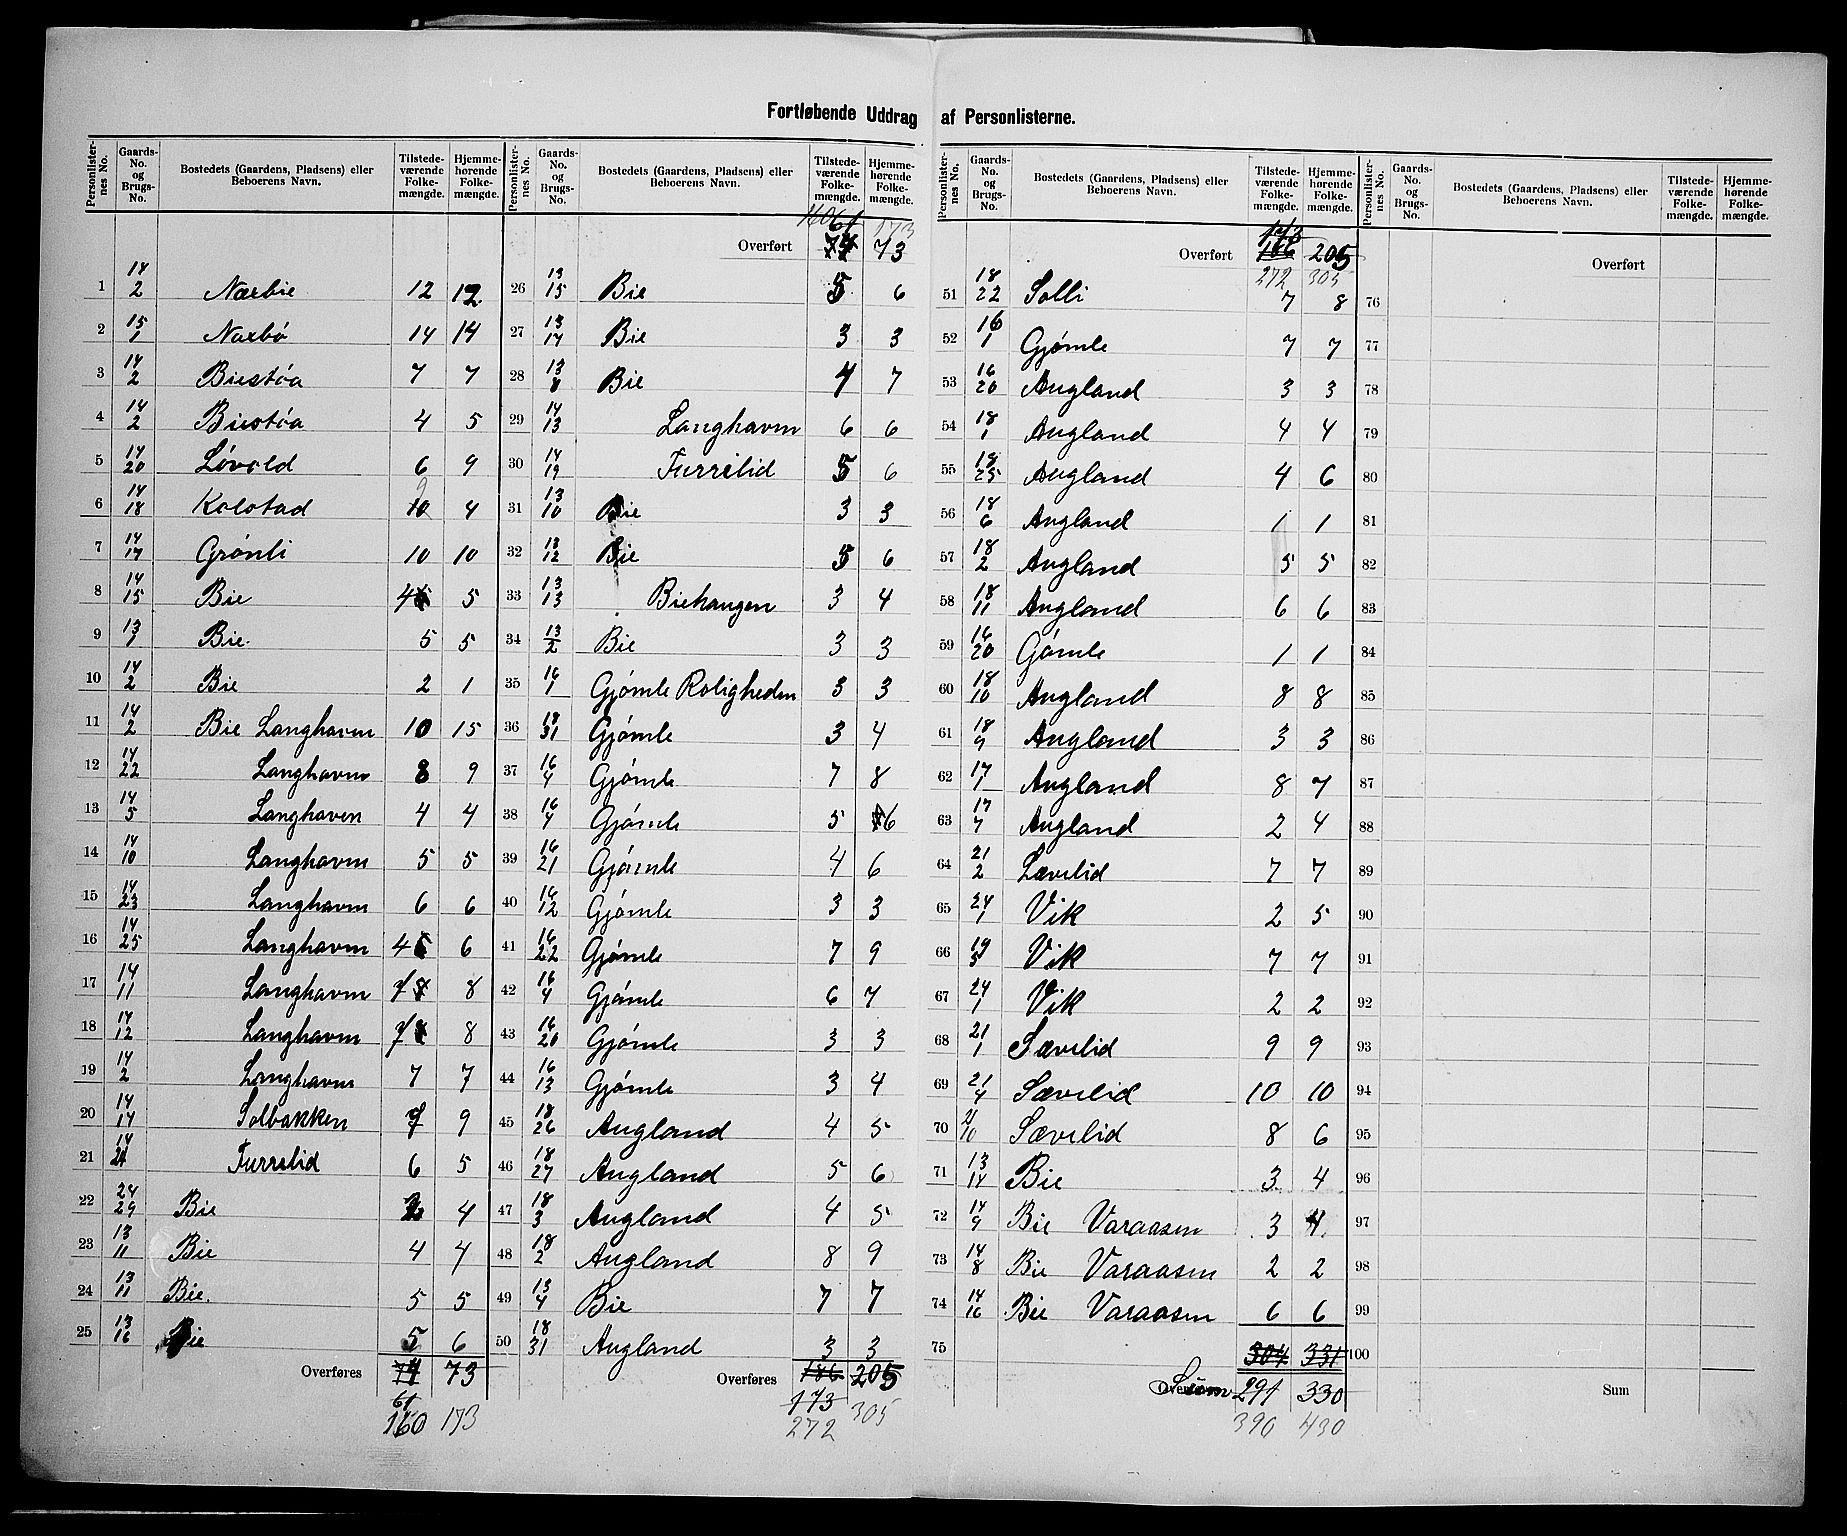 Fortløbende Uddrag af Personlisterne.
Personlisternes No. | Gaards-No. og Brugs-No. | Bostedets (Gaardens, Pladsens) eller Beboerens Navn. | Tilstedeværende Folkemængde. | Hjemmehørende Folkemængde.
1 14/2 Nærbie 12 12
2 15/1 Nærbø 14 14
3 14/2 Biestøa 7 7
4 14/2 Biestøa 4 5
5 14/20 Løvold 6 9
6 14/18 Kolstad 10 9 4
7 14/17 Grønli 10 10
8 14/15 Bie 4 5
9 13/1 Bie. 5 5
10 14/2 Bie 2 1
11 14/2 Bie Langhavm 10 15
12 14/22 Langhavm 8 9
13 14/5 Langhaven 4 4
14 14/10 Langhavm 5 5
15 14/23 Langhavm 6 6
16 14/25 Langhavm 4 6
17 14/11 Langhavm 7 8 8
18 14/12 Langhavm 7 8
19 14/2 Langhavm 7 7
20 14/14 Solbakken 7 9
21 14/21 Furrelid 6 5
22 24/29 Bie 2 4
23 13/11 Bie 4 4
24 13/11 Bie. 5 5
25 13/16 Bie 5 6
Overføres 74 73
61
160 173
160 61 173
Overført 74 73
26 13/15 Bie 5 6
27 13/14 Bie 3 3
28 13/8 Bie 7 7
29 14/13 Langhavm 6 6
30 14/19 Furrelid 5 6
31 13/10 Bie 3 3
32 13/12 Bie 5 6
33 13/13 Biehaugen 3 4
34 13/2 Bie 3 3
35 16/1 Gjømle Roligheden 3 3
36 18/31 Gjømle 3 4
37 16/4 Gjømle 7 8
38 16/4 Gjømle 5 6
39 16/21 Gjømle 4 6
40 16/12 Gjømle 3 3
41 16/22 Gjømle 7 9
42 16/4 Gjømle 6 7
43 16/20 Gjømle 3 3
44 16/13 Gjømle 3 4
45 18/26 Augland 4 5
46 18/27 Augland 5 6
47 18/3 Augland 4 5
48 18/2 Augland 8 9
49 13/4 Bie 7 7
50 18/31 Augland 3 3
Overføres 186 205
173 305
272
173
Overført 186 205
272 305
51 18/22 Solli 7 8
52 16/1 Gjømle 7 7
53 16/20 Augland 3 3
54 18/1 Augland 4 4
55 18/25 Augland 4 6
56 18/6 Augland 1 1
57 18/2 Augland 5 5
58 18/11 Augland 6 6
59 16/20 Gømle 1 1
60 18/10 Augland 8 8
61 18/9 Augland 3 3
62 17/1 Augland 8 7
63 17/7 Augland 2 4
64 21/2 Lævelid 7 7
65 24/1 Vik 2 5
66 19/3 Vik 7 7
67 24/1 Vik 2 2
68 21/1 Sævelid 9 9
69 21/4 Sævelid 10 10
70 21/10 Sævelid 8 6
71 13/14 Bie 3 4
72 14/9 Bie Varaasen 3 4
73 14/8 Bie Varaasen 2 2
74 14/16 Bie Varaasen 6 6
75 304 331
Overføres Sum 291 330
390 430
Overført
76
77
78
79
80
81
82
83
84
85
86
87
88
89
90
91
92
93
94
95
96
97
98
99
100
Sum